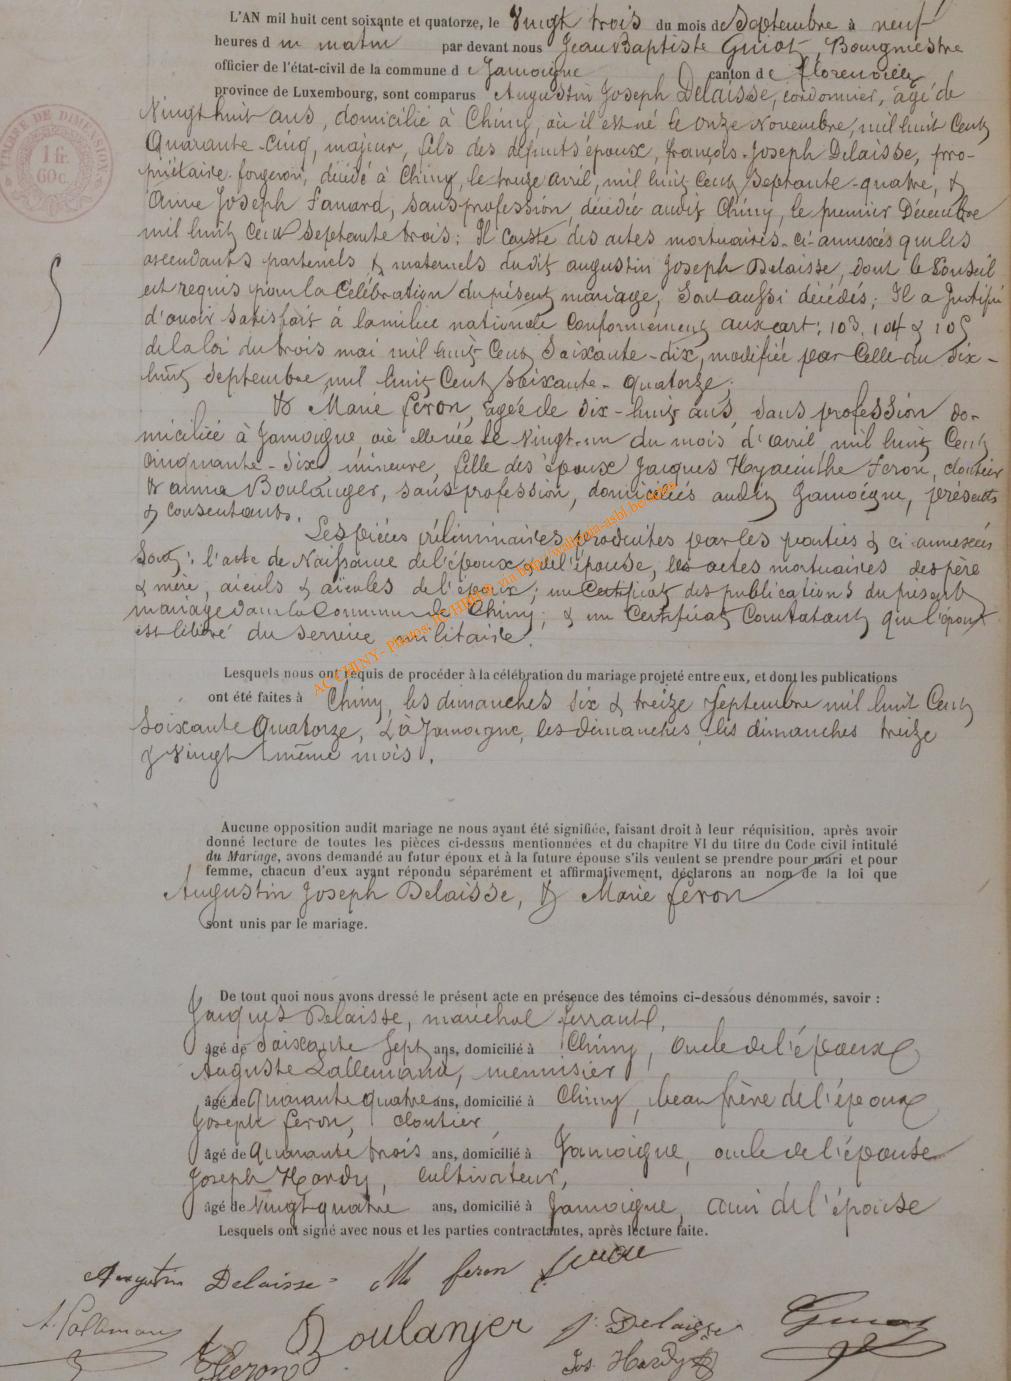 L'AN mil huit cent soixante et quatorze, le Vingt trois du mois de Septembre à neuf
heures d u matin par devant nous Jean Baptiste Guiot, Bourgmestre
officier de l'état-civil de la commune d e Jamoigne canton de florenville
province de Luxembourg, sont comparus Augustin Joseph Delaisse, cordonnier, âgé de
TIMBRE DE DIMENSION
1 fr.
60c.
Vingt huit ans, domicilié à Chiny, où il est né le Onze Novembre, mil huit Cent
Quarante-Cinq, majeur, fils des défunts époux, françois-Joseph Delaisse, pro-
priétaire-forgeron, décédé à Chiny, le treize avril, mil huit Cent Septante-quatre, &
Anne Joseph Fanard, sans profession, décédée audit Chiny, le premier Décembre
mil huit Cent Septante trois; Il conste des actes mortuaires ci-annexés que les
ascendants parternels & maternels dudit augustin Joseph Delaisse, dont le Conseil
est requis pour la Célébration du présent mariage, sont aussi décédés; Il a Justifié
d'avoir satisfait à la milice nationale Conformément aux art: 103, 104 & 105
de la loi du trois mai mil huit Cent Soixante-dix, modifiée par Celle du dix-
huit Septembre mil huit Cent Soixante-quatorze;
& Marie feron, agée de dix-huit ans, Sans profession do-
miciliée à Jamoigne où elle née le Vingt-un du mois d'avril mil huit Cent
Cinquante-Six, mineure, fille des époux Jacques Hyacinthe Feron, cloutier
& anna Boulanger, sans profession, domiciliés audit Jamoigne, présents
& consentants.
Les pièces préliminaires produites par les parties & ci-annexées
Sont: l'acte de Naissance de l'époux & de l'épouse, les actes mortuaires des père
& mère, aïeuls & aïeules de l'époux; un Certificat des publications du présent
mariage dans la Commune de Chiny; & un Certificat Constatant que l'époux
est libéré du service militaire.
AC CHINY - Photos:
Lesquels nous ont requis de procéder à la célébration du mariage projeté entre eux, et dont les publications
ont été faites à Chiny, les dimanches six & treize Septembre mil huit Cent
Soixante Quatorze, & à Jamoigne, les dimanches, les dimanches treize
& Vingt même mois.
Aucune opposition audit mariage ne nous ayant été signifiée, faisant droit à leur réquisition, après avoir
donné lecture de toutes les pièces ci-dessus mentionnées et du chapitre VI du titre du Code civil intitulé
du Mariage, avons demandé au futur époux et à la future épouse s'ils veulent se prendre pour mari et pour
femme, chacun d'eux ayant répondu séparément et affirmativement, déclarons au nom de la loi que
Augustin Joseph Delaisse, & Marie feron
sont unis par le mariage.
De tout quoi nous avons dressé le présent acte en présence des témoins ci-dessous dénommés, savoir :
Jacques Delaisse, maréchal ferrant,
âgé de Soixante Sept ans, domicilié à Chiny, oncle de l'époux
Auguste Lallemand, menuisier
âgé de Quarante quatre ans, domicilié à Chiny, beau frère de l'époux
Joseph feron, cloutier,
âgé de Quarante trois ans, domicilié à Jamoigne, oncle de l'épouse
Joseph Hardy, cultivateur,
âgé de Vingt quatre ans, domicilié à Jamoigne, ami de l'épouse
Lesquels ont signé avec nous et les parties contractantes, après lecture faite.
Augustin Delaisse - M feron
A. Lalleman Boulanjer j. Delaisse Guiot
feron Jos. Hardy